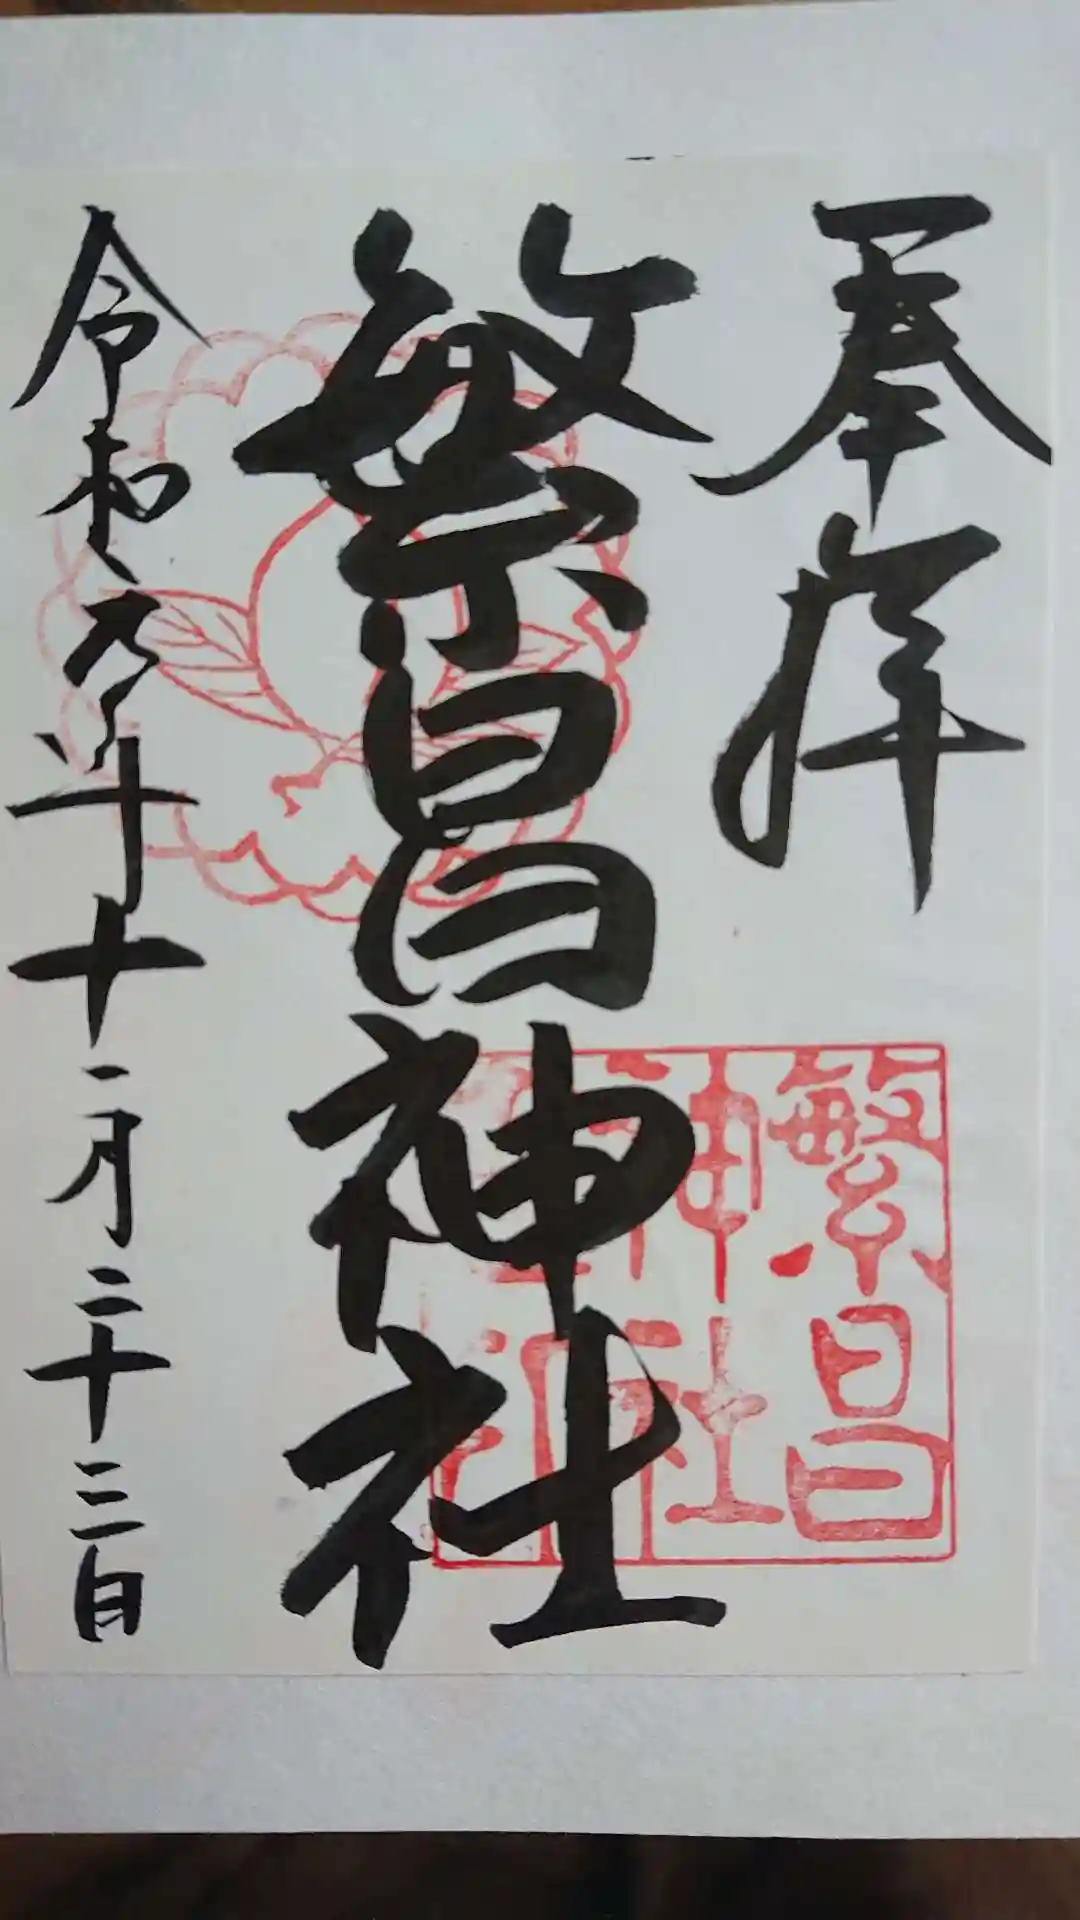 奉拝
繁昌神社
令和元年十一月二十三日
繁昌
神社